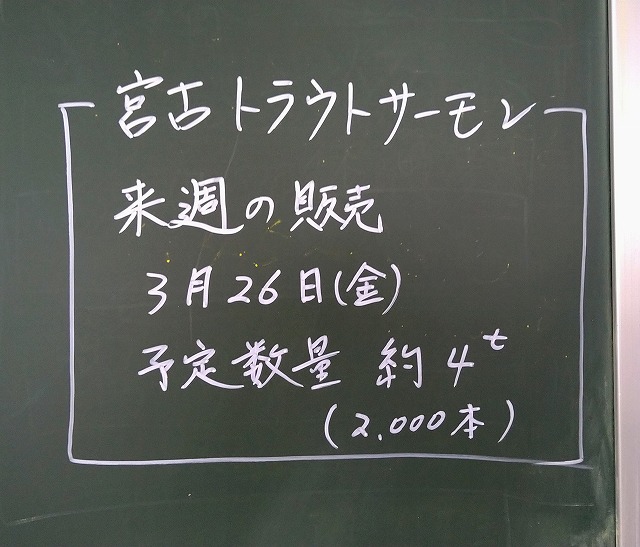 宮古トラウトサーモン
来週の販売
3月26日(金)
予定数量 約4t
(2,000本)